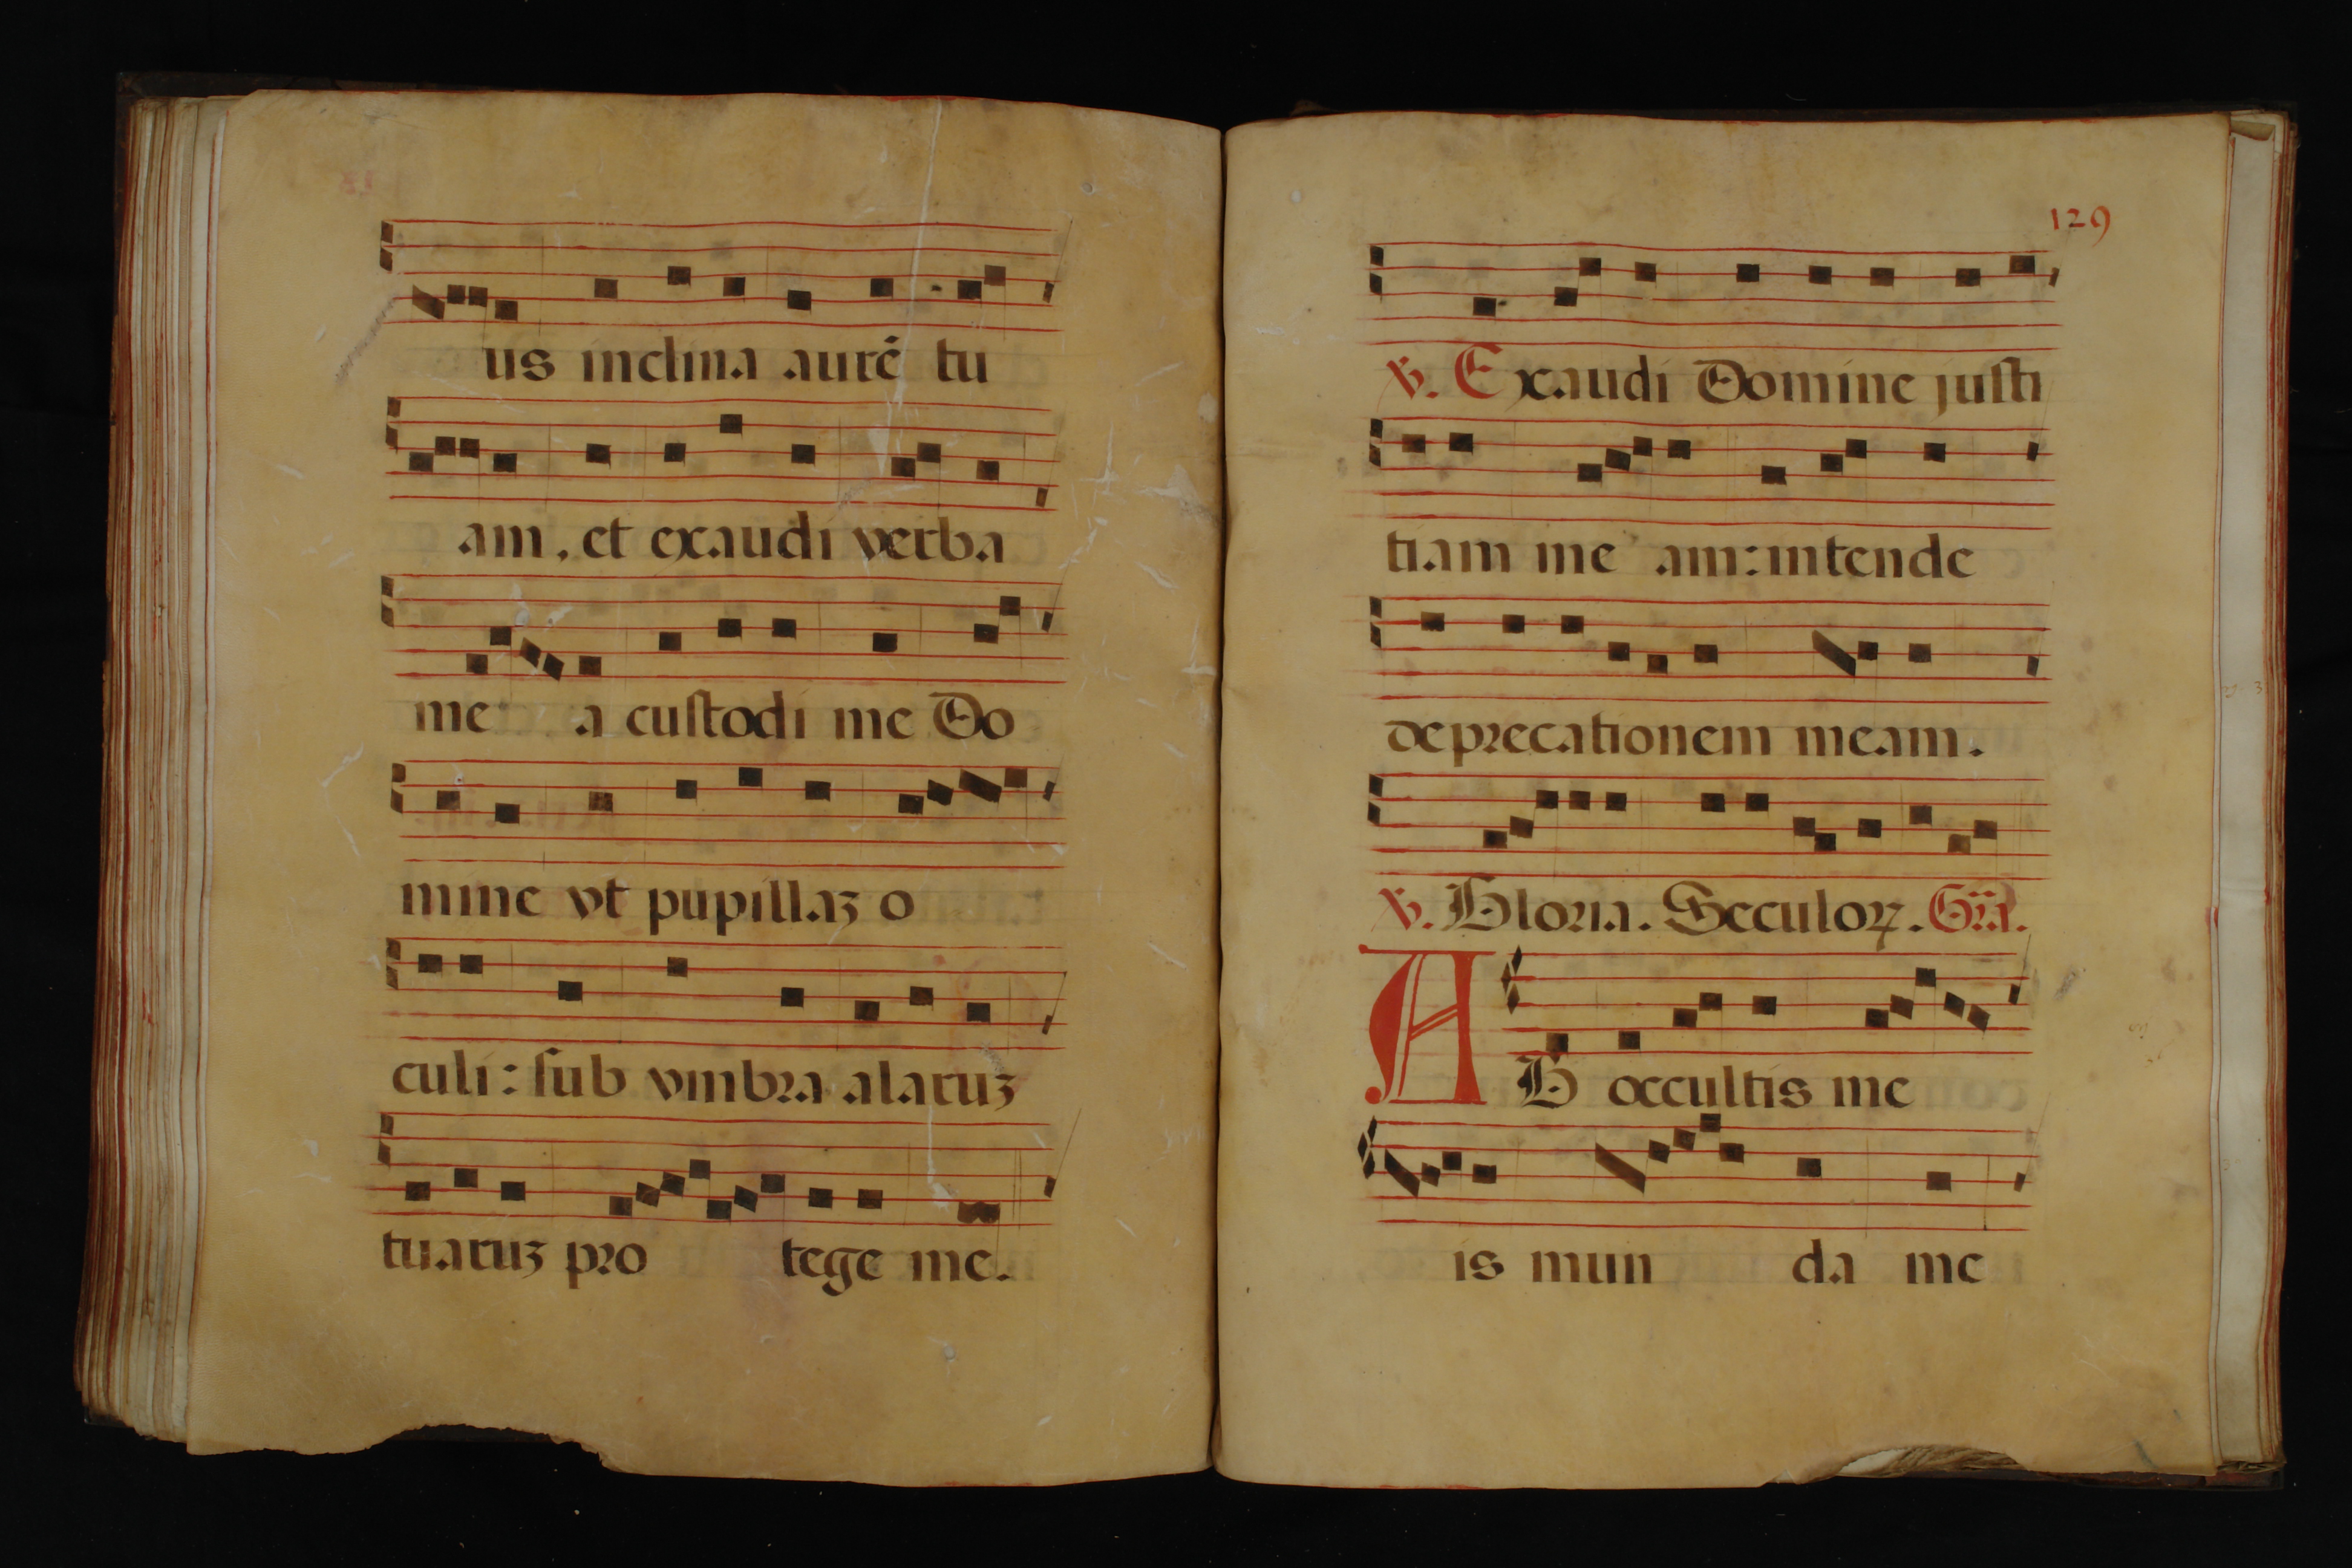 us inclina aurē tu
am, et exaudi verba
me a custodi me Do
mine vt pupillaʒ o
culi: sub vmbra alaruʒ
tuaruʒ pro tege me.
129
℣. Exaudi Domine justi
tiam me am: intende
deprecationem meam.
℣. Gloria. Seculoꝝ. Gr̄a.
AB occultis me
is mun da me